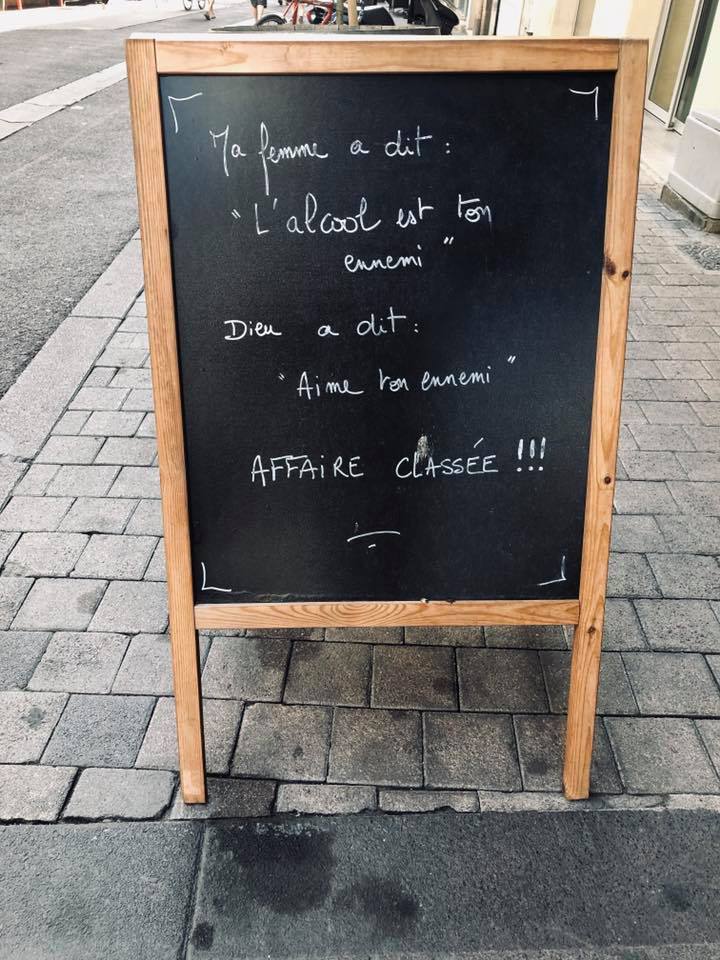 Ma femme a dit :
"L'alcool est ton
ennemi"
Dieu a dit :
"Aime ton ennemi"
AFFAIRE CLASSÉE !!!